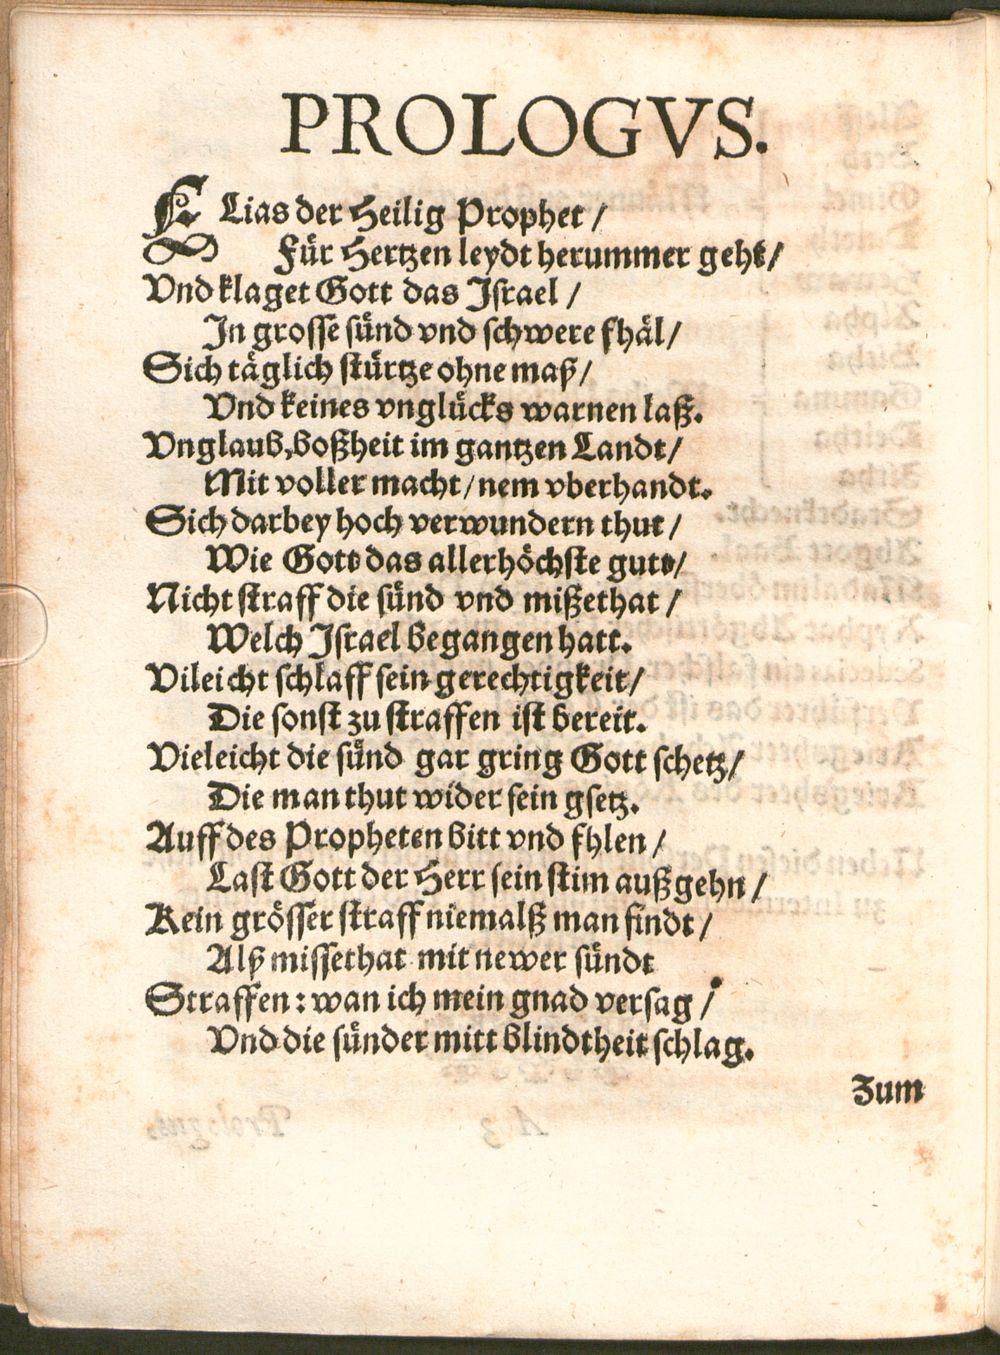 PROLOGVS.
ELias der Heilig Prophet /
Für Hertzen leydt herummer geht /
Vnd klaget Gott das Israel /
In grosse sünd vnd schwere fhäl /
Sich täglich stürtze ohne maß /
Vnd keines vnglücks warnen laß.
Vnglaub, boßheit im gantzen Landt /
Mit voller macht / nem vberhandt.
Sich darbey hoch verwundern thut /
Wie Gott das allerhöchste gute /
Nicht straff die sünd vnd mißethat /
Welch Israel begangen hatt.
Vileicht schlaff sein gerechtigkeit /
Die sonst zu straffen ist bereit.
Vieleicht die sünd gar gring Gott schetz /
Die man thut wider sein gsetz.
Auff des Propheten bitt vnd fhlen /
Last Gott der Herr sein stim außgehn /
Kein grösser straff niemalß man findt /
Alß missethat mit newer sündt
Straffen: wan ich mein gnad versag /
Vnd die sünder mitt blindtheit schlag.
Zum